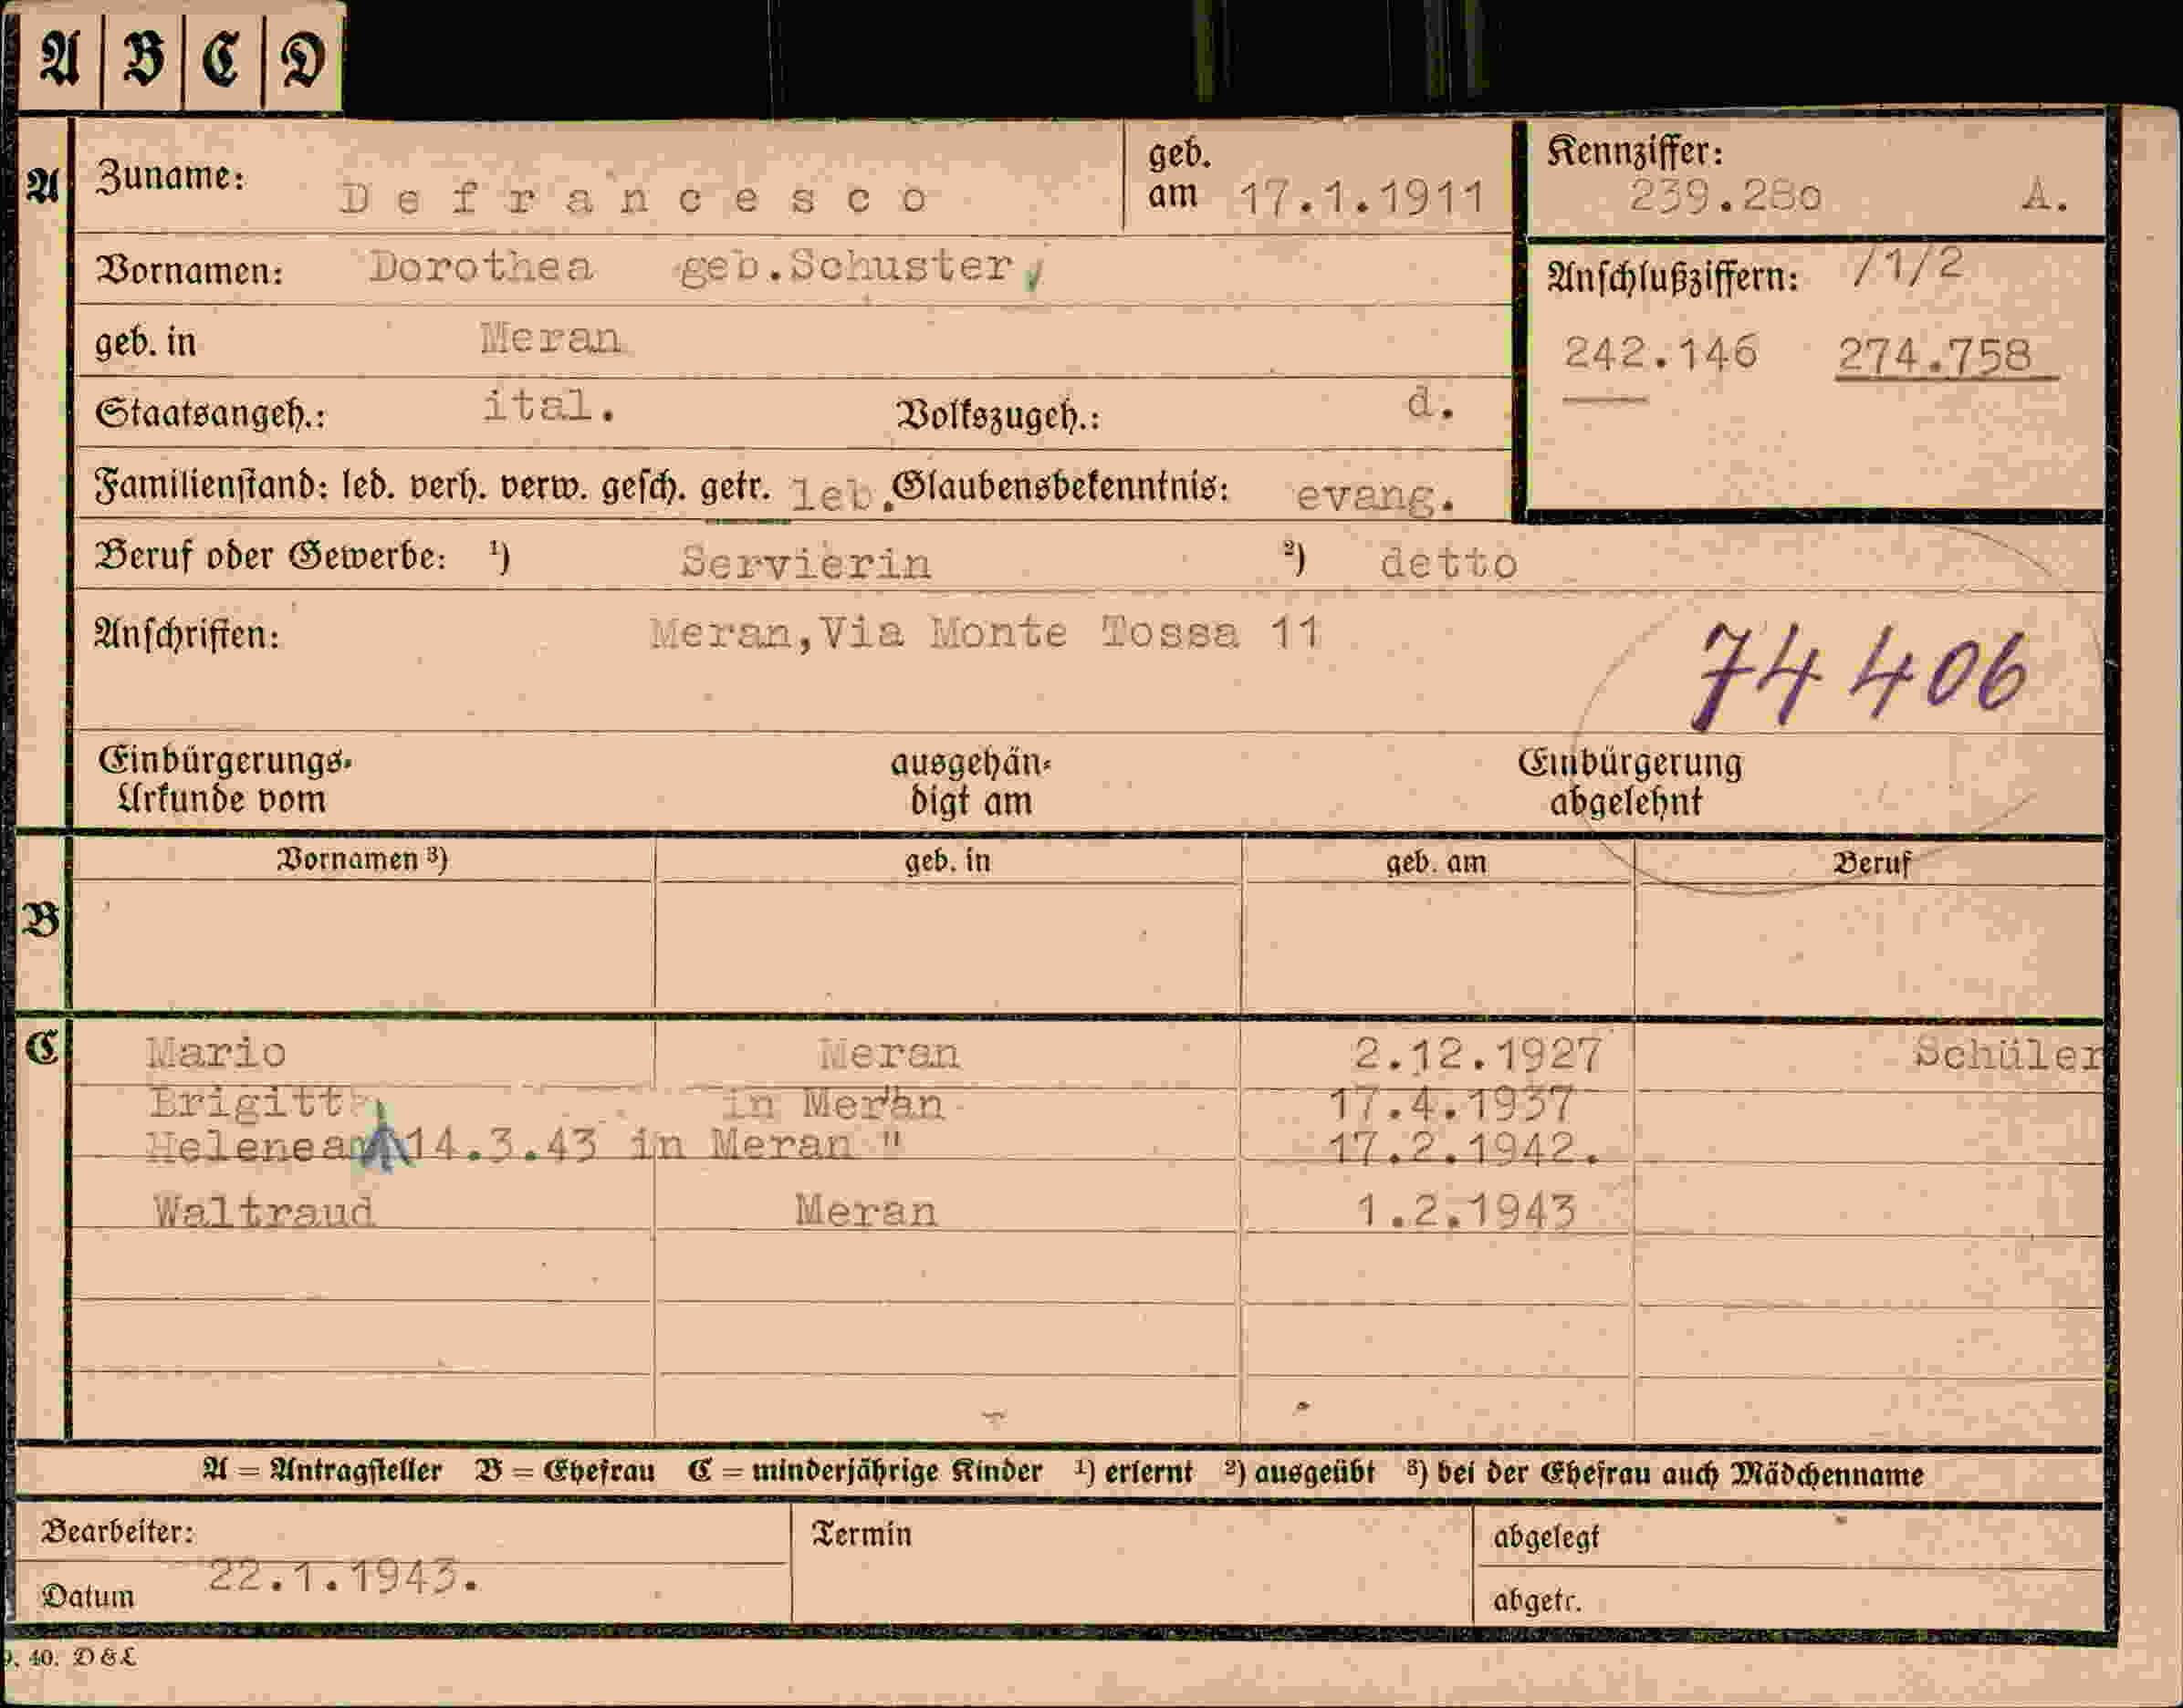 A B C D
A Zuname: Defrancesco geb. am 17.1.1911 Kennziffer: 239.280 A.
Vornamen: Dorothea geb.Schuster,
Anschlußziffern: /1/2
geb. in Meran
242.146 274.758
Staatsangeh.: ital. Volkszugeh.: d.
Familienstand: led. verh. verw. gesch. getr. leb. Glaubensbekenntnis: evang.
Beruf oder Gewerbe: 1) Servierin 2) detto
Anschriften: Meran,Via Monte Tossa 11
74 406
Einbürgerungs-Urkunde vom ausgehän-digt am Einbürgerung abgelehnt
Vornamen 3) geb. in geb. am Beruf
B
C Mario Meran 2.12.1927 Schüler
Brigitt in Meran 17.4.1937
Helene 14.3.43 in Meran " 17.2.1942.
Waltraud Meran 1.2.1943
A = Antragsteller B = Ehefrau C = minderjährige Kinder 1) erlernt 2) ausgeübt 3) bei der Ehefrau auch Mädchenname
Bearbeiter: Termin abgelegt
Datum 22.1.1943. abgetr.
40. D & L